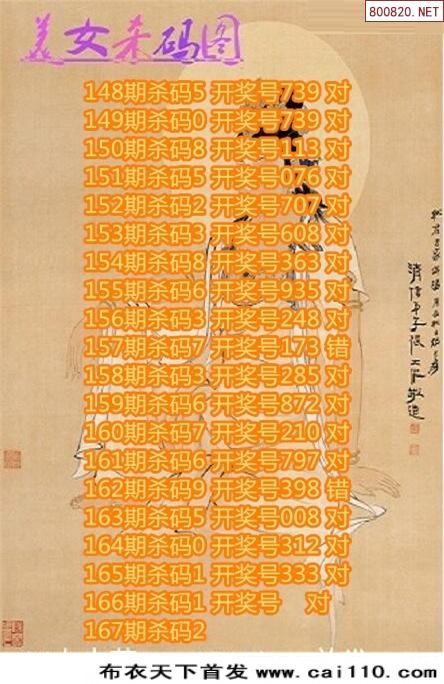 800820.NET
美女杀码图
148期杀码5 开奖号739 对
149期杀码0 开奖号739 对
150期杀码8 开奖号113 对
151期杀码5 开奖号076 对
152期杀码2 开奖号707 对
153期杀码3 开奖号608 对
154期杀码8 开奖号363 对
155期杀码6 开奖号935 对
156期杀码3 开奖号248 对
157期杀码7 开奖号173 错
158期杀码3 开奖号285 对
159期杀码6 开奖号872 对
160期杀码7 开奖号210 对
161期杀码6 开奖号797 对
162期杀码9 开奖号398 错
163期杀码5 开奖号008 对
164期杀码0 开奖号312 对
165期杀码1 开奖号338 对
166期杀码1 开奖号 对
167期杀码2
布衣天下首发 www.cai110.com